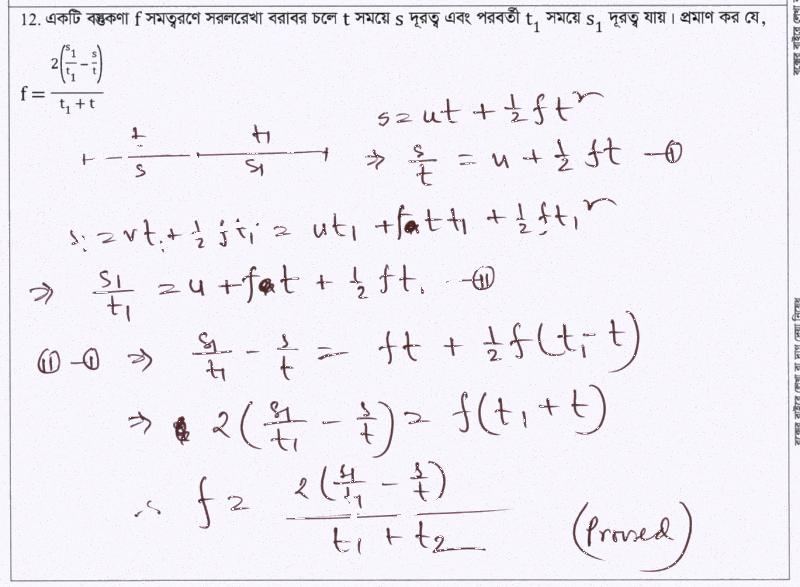 12. একটি বস্তুকণা f সমত্বরণে সরলরেখা বরাবর চলে t সময়ে s দূরত্ব এবং পরবর্তী t₁ সময়ে s₁ দূরত্ব যায়। প্রমাণ কর যে,
f = 2(s₁/t₁ - s/t) / t₁ + t
s = ut + ½ ft²
t t₁
s s₁
⇒ s/t = u + ½ ft —(i)
s₁ = vt₁ + ½ ft₁² = ut₁ + ftt₁ + ½ ft₁²
⇒ s₁/t₁ = u + ft + ½ ft₁ —(ii)
(ii) - (i) ⇒ s₁/t₁ - s/t = ft + ½ f(t₁ - t)
⇒ 2(s₁/t₁ - s/t) = f(t₁ + t)
∴ f = 2(s₁/t₁ - s/t) / t₁ + t₂
(Proved)